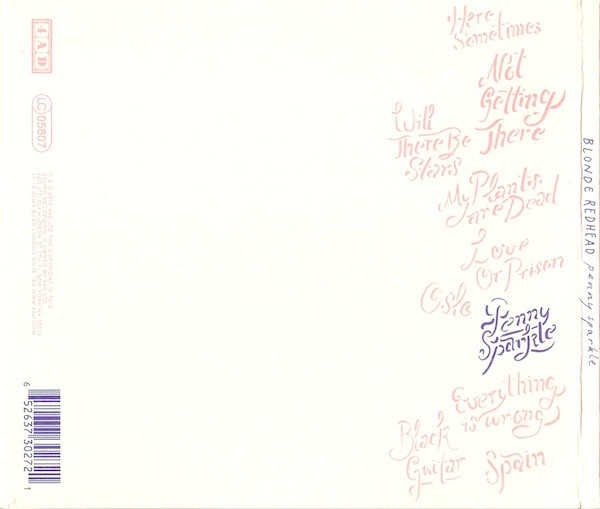 Here
Sometimes
Not
Getting
There
Will
There Be
Stars
My Plants
are Dead
Love
Or Prison
Oslo
Penny
Sparkle
Everything
is wrong
Black
Guitar
Spain
BLONDE REDHEAD penny sparkle
4AD
LC 05807
6 52637 30272 1